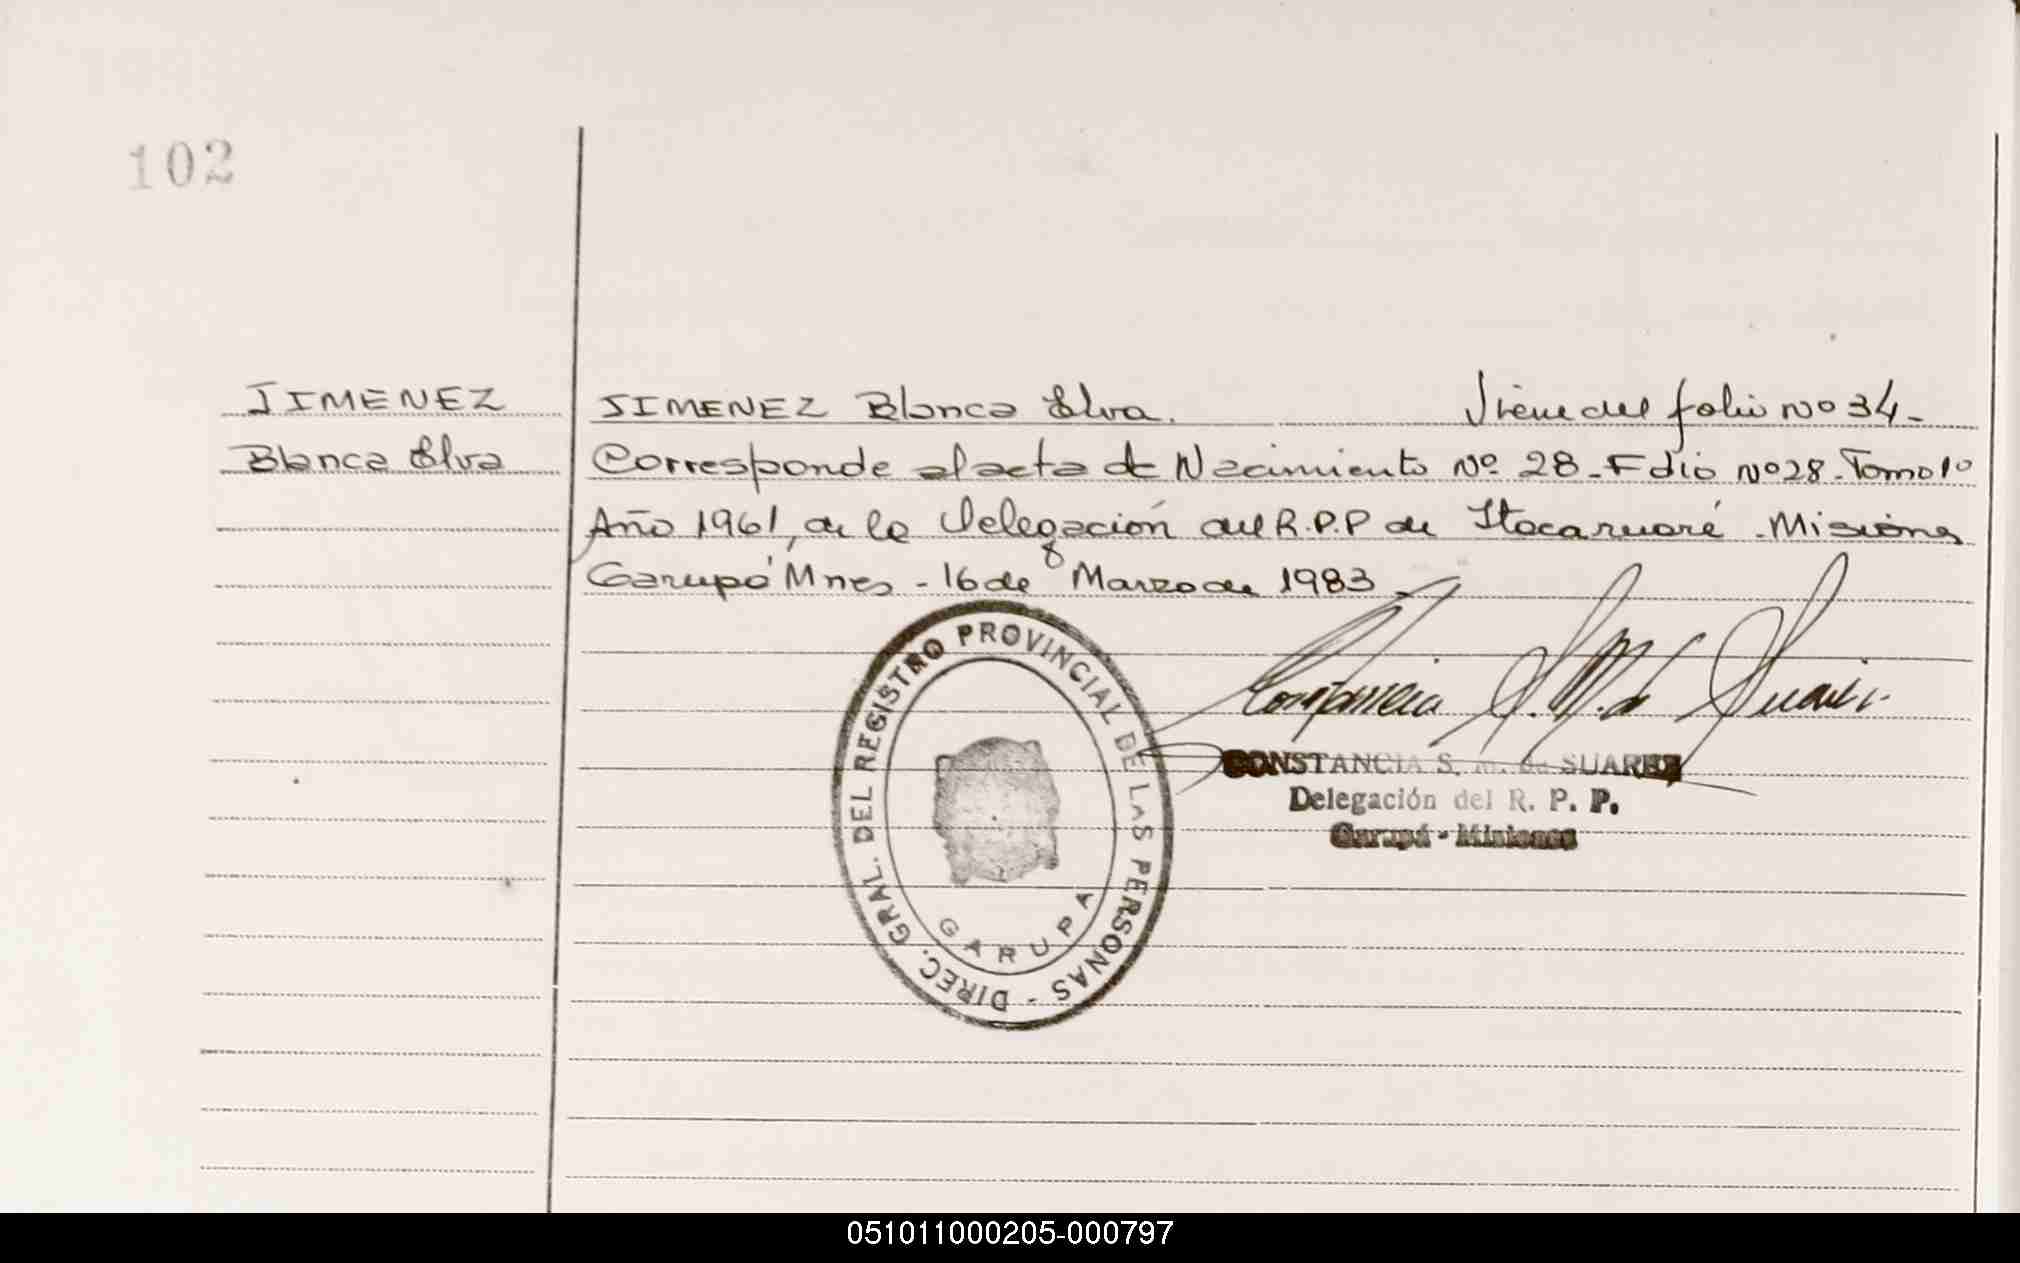 102
JIMENEZ
Blanca Elva
JIMENEZ Blanca Elva. Viene del folio Nº 34-
Corresponde al acta de Nacimiento Nº 28-Folio Nº28-Tomo 1º
Año 1961, de la Delegación del R.P.P de Itacaruaré - Misiones
Garupá Mnes - 16 de Marzo de 1983
DIREC. GRAL. DEL REGISTRO PROVINCIAL DE LAS PERSONAS -
GARUPA
Constancia S. M. de Suarez
CONSTANCIA S. M. de SUAREZ
Delegación del R. P. P.
Garupá - Misiones
051011000205-000797